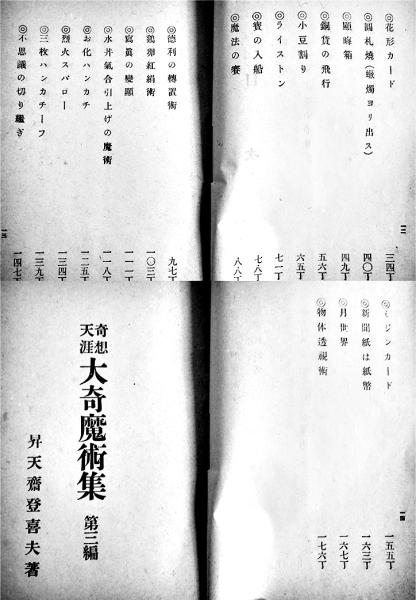 ◎花形カード 三四丁
◎圓札燒(蠟燭ヨリ出ス) 四〇丁
◎顯晦箱 四九丁
◎銅貨の飛行 五六丁
◎小豆割り 六五丁
◎ライストン 七一丁
◎寶の入船 七八丁
◎魔法の賽 八八丁
◎徳利の轉置術 九七丁
◎鷄卵紅絹術 一〇三丁
◎寫眞の變顯 一一一丁
◎水丼氣合引上げの魔術 一一八丁
◎お化ハンカチ 一二五丁
◎烈火スパロー 一三四丁
◎三枚ハンカチーフ 一三九丁
◎不思議の切り繼ぎ 一四七丁
一三
◎ミジンカード 一五五丁
◎新聞紙は紙幣 一六三丁
◎月世界 一六七丁
◎物体透視術 一七六丁
一四
奇想
天涯
大奇魔術集 第三編
昇天齋登喜夫著